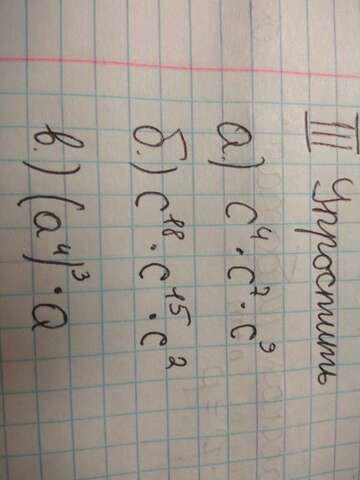 III Упростить
а.) c⁴ · c⁷ · c⁹
б.) c¹⁸ · c¹⁵ · c²
в.) (a⁴)³ · a